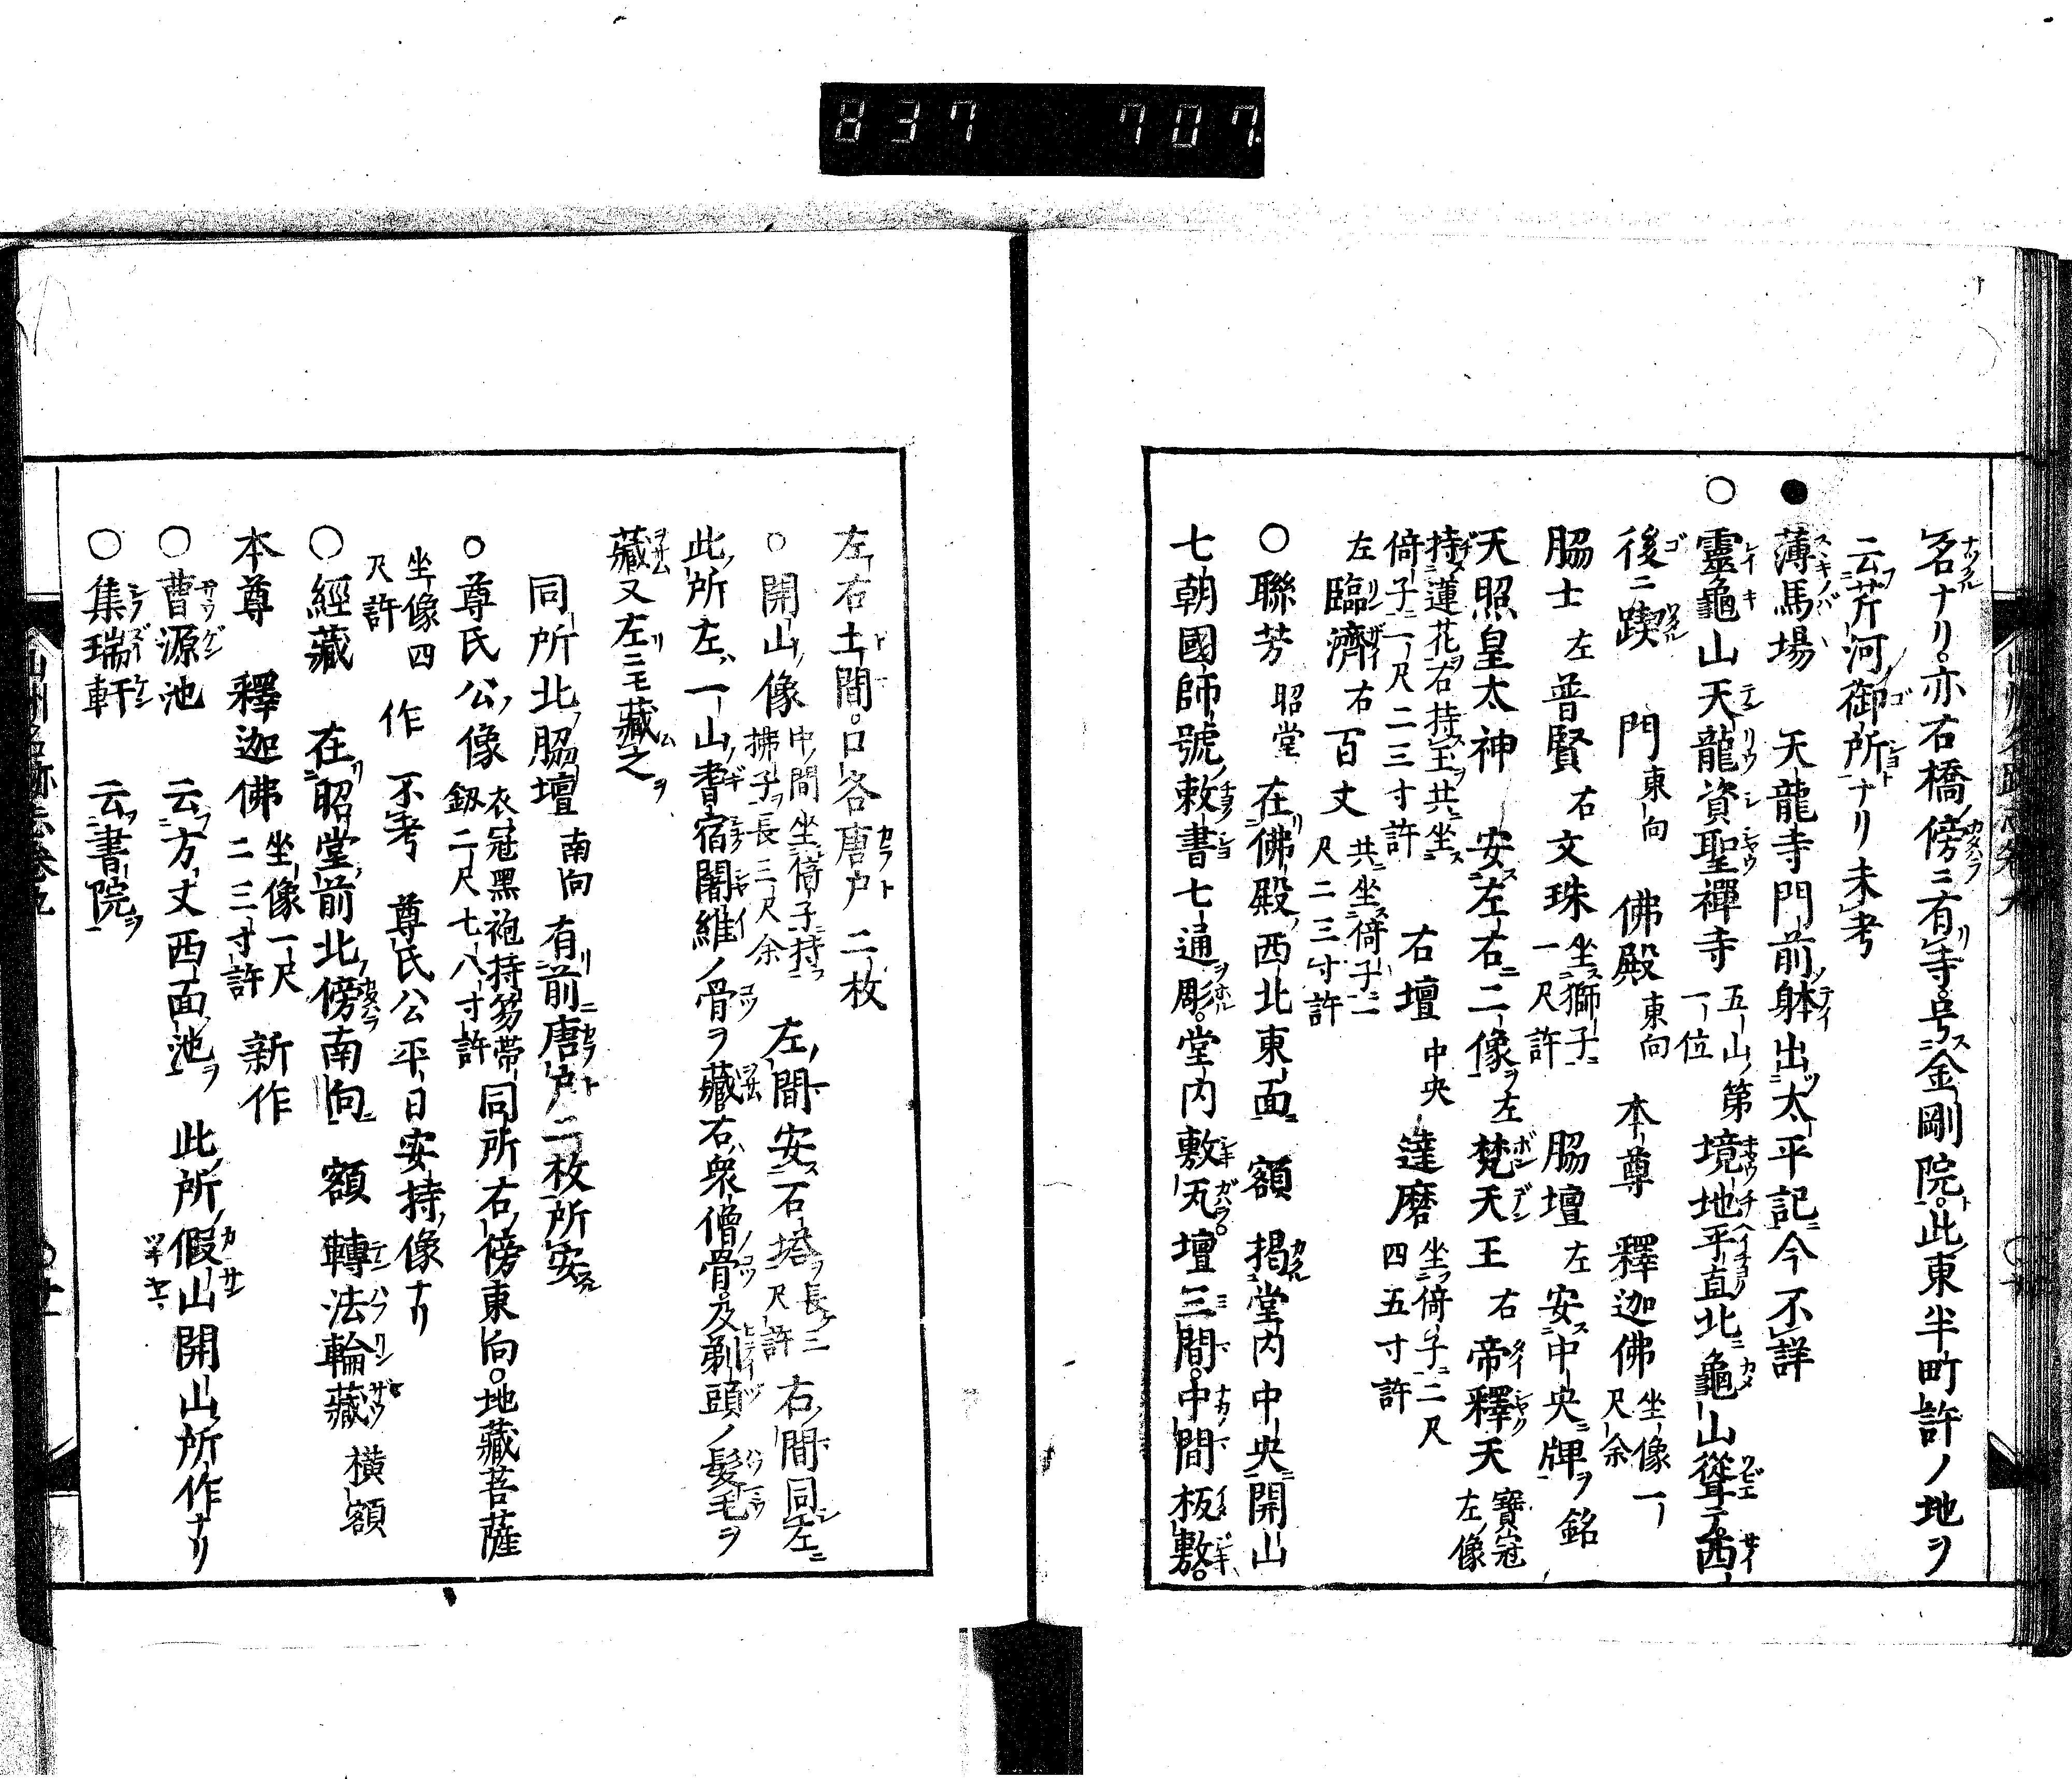 837 707
名ナリ。亦右橋ノ傍ニ有寺。号金剛院。此東半町許ノ地ヲ
云芹河御所ナリ未考
●薄馬場 天龍寺門前躰出太平記今不詳
○靈龜山天龍資聖禪寺 五山第一位 境地平直北ニ龜山聳テ西
後ニ踞 門 東向 佛殿 東向 本尊 釋迦佛 坐像一尺余
脇士 左普賢 右文珠 坐獅子一尺許 脇壇 左 安中央牌ヲ銘
天照皇太神 安左右二像ヲ左梵天王 右帝釋天 寶冠左像
持蓮花右持玉共坐倚子一尺二三寸許 右壇 中央 達磨 坐倚子二尺四五寸許
左臨濟 右百丈 共坐倚子二尺二三寸許
○聯芳 昭堂 在佛殿西北東面 額 掲堂内中央開山
七朝國師號敕書七通彫。堂内敷瓦壇三間。中間板敷。
左右土間。口各唐戸二枚
○開山像 中間坐倚子持拂子長三尺余 左間安石塔長二尺許 右間同左
此所左一山耆宿闍維ノ骨ヲ藏右衆僧骨及剃頭ノ髮毛ヲ
藏又左ニモ藏之
同所北脇壇 南向 有前唐戸二枚所安
○尊氏公像 衣冠黑袍持笏帶釼二尺七八寸許 同所右傍東向。地藏菩薩
坐像四尺許 作 不考 尊氏公平日安持像ナリ
○經藏 在昭堂前北傍南向 額 轉法輪藏 横額
本尊 釋迦佛 坐像一尺二三寸許 新作
○曹源池 云方丈西面池 此所假山開山所作ナリ
○集瑞軒 云書院